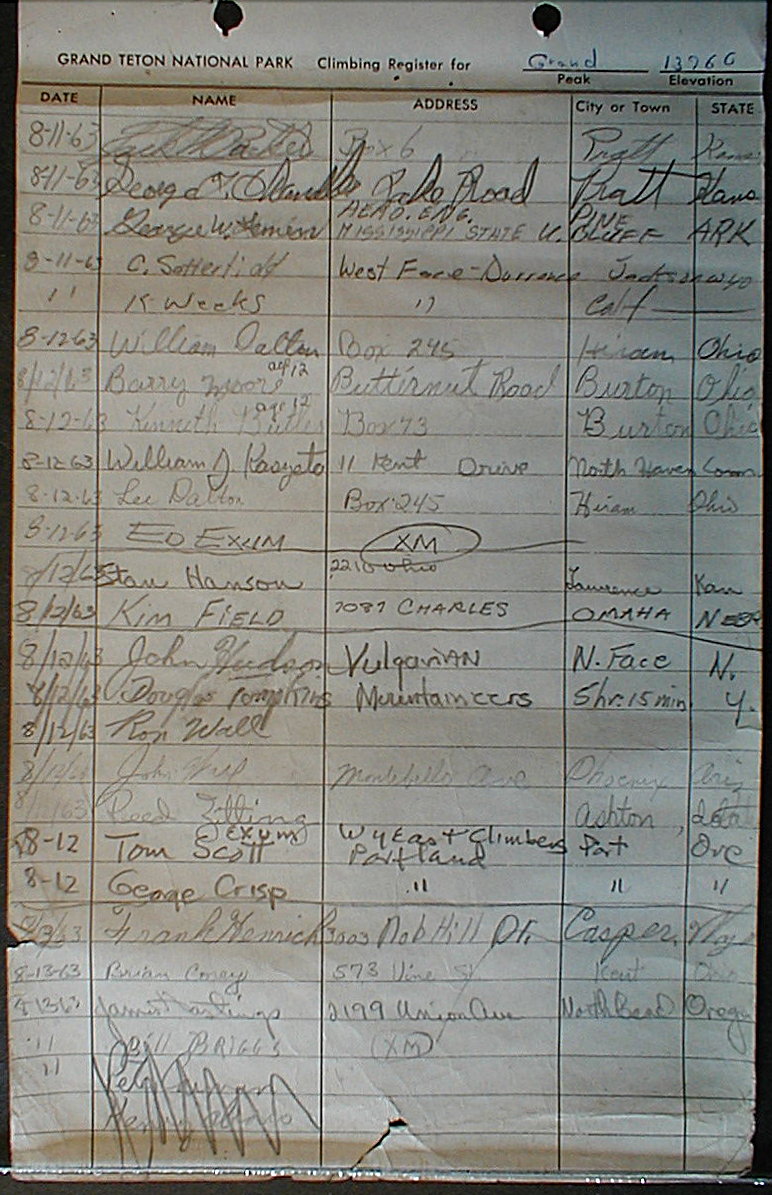 GRAND TETON NATIONAL PARK Climbing Register for Grand 13766
Peak Elevation
DATE NAME ADDRESS City or Town STATE
8-11-63 Box 6 Pratt Kans
8-11-63 George Lake Road Pratt Kans
AERO. ENG. PINE
8-11-63 George W. MISSISSIPPI STATE U. BLUFF ARK
8-11-63 C. Satterfield West Face - Durrance Jackson Wyo
" K Weeks " Calf
8-12-63 William Dalton Box 245 Hiram Ohio
age 12
8/12/63 Barry Moore Butternut Road Burton Ohio
age 12
8-12-63 Kenneth Butler Box 73 Burton Ohio
8-12-63 William J 11 Kent Drive North Haven Conn.
8-12-63 Lee Dalton Box 245 Hiram Ohio
8-12-63 ED EXUM XM
8/12/63 Stan Hanson 2210 Ohio Lawrence Kan
8/12/63 KIM FIELD 7087 CHARLES OMAHA NEBR
8/12/63 John Hudson VulgariAN N. Face N.
8/12/63 Douglas Tompkins Mountaineers 5hr. 15 min. Y.
8/12/63 Ron Wall
John Montebello Ave Phoenix Ariz
Reed Zitting Ashton, Idah
EXUM
8-12 Tom Scott Wy East Climbers Port Ore
Portland
8-12 George Crisp " " "
Frank Henrick 3003 Nob Hill Dr. Casper, Wyo
8-13-63 Brian 573 Vine St. Kent Ohio
8-13-63 James Hastings 2199 Union Ave North Bend Oregon
" Bill BRIGGS (XM)
"